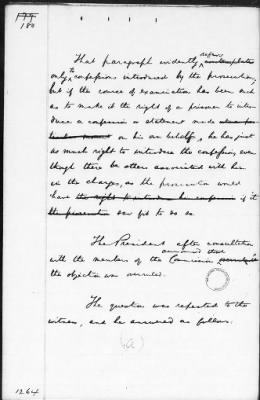 188
That paragraph evidently refers
only to confessions introduced by the prosecution,
but if the course of examination has been such
as to make it the right of a prisoner to intro-
duce a confession or statement made
on his own behalf, he has just
as much right to introduce the confession, even
though there be others associated with him
in the charges, as the prosecution would
have if it
the prosecution saw fit to do so.
The President after consultation
with the members of the Commission, announced that
the objection was overruled.
The question was repeated to the
witness, and he answered as follows:
(a)
1264